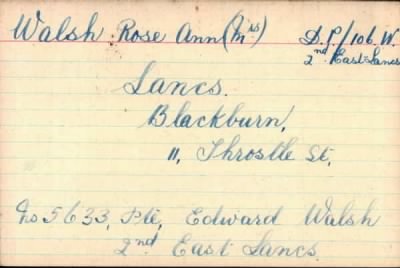 Walsh. Rose Ann (Miss) D.P./106.W.
2nd East Lancs
Lancs.
Blackburn,
11, Throstle St,
No 5633, Pte, Edward Walsh
2nd East Lancs.